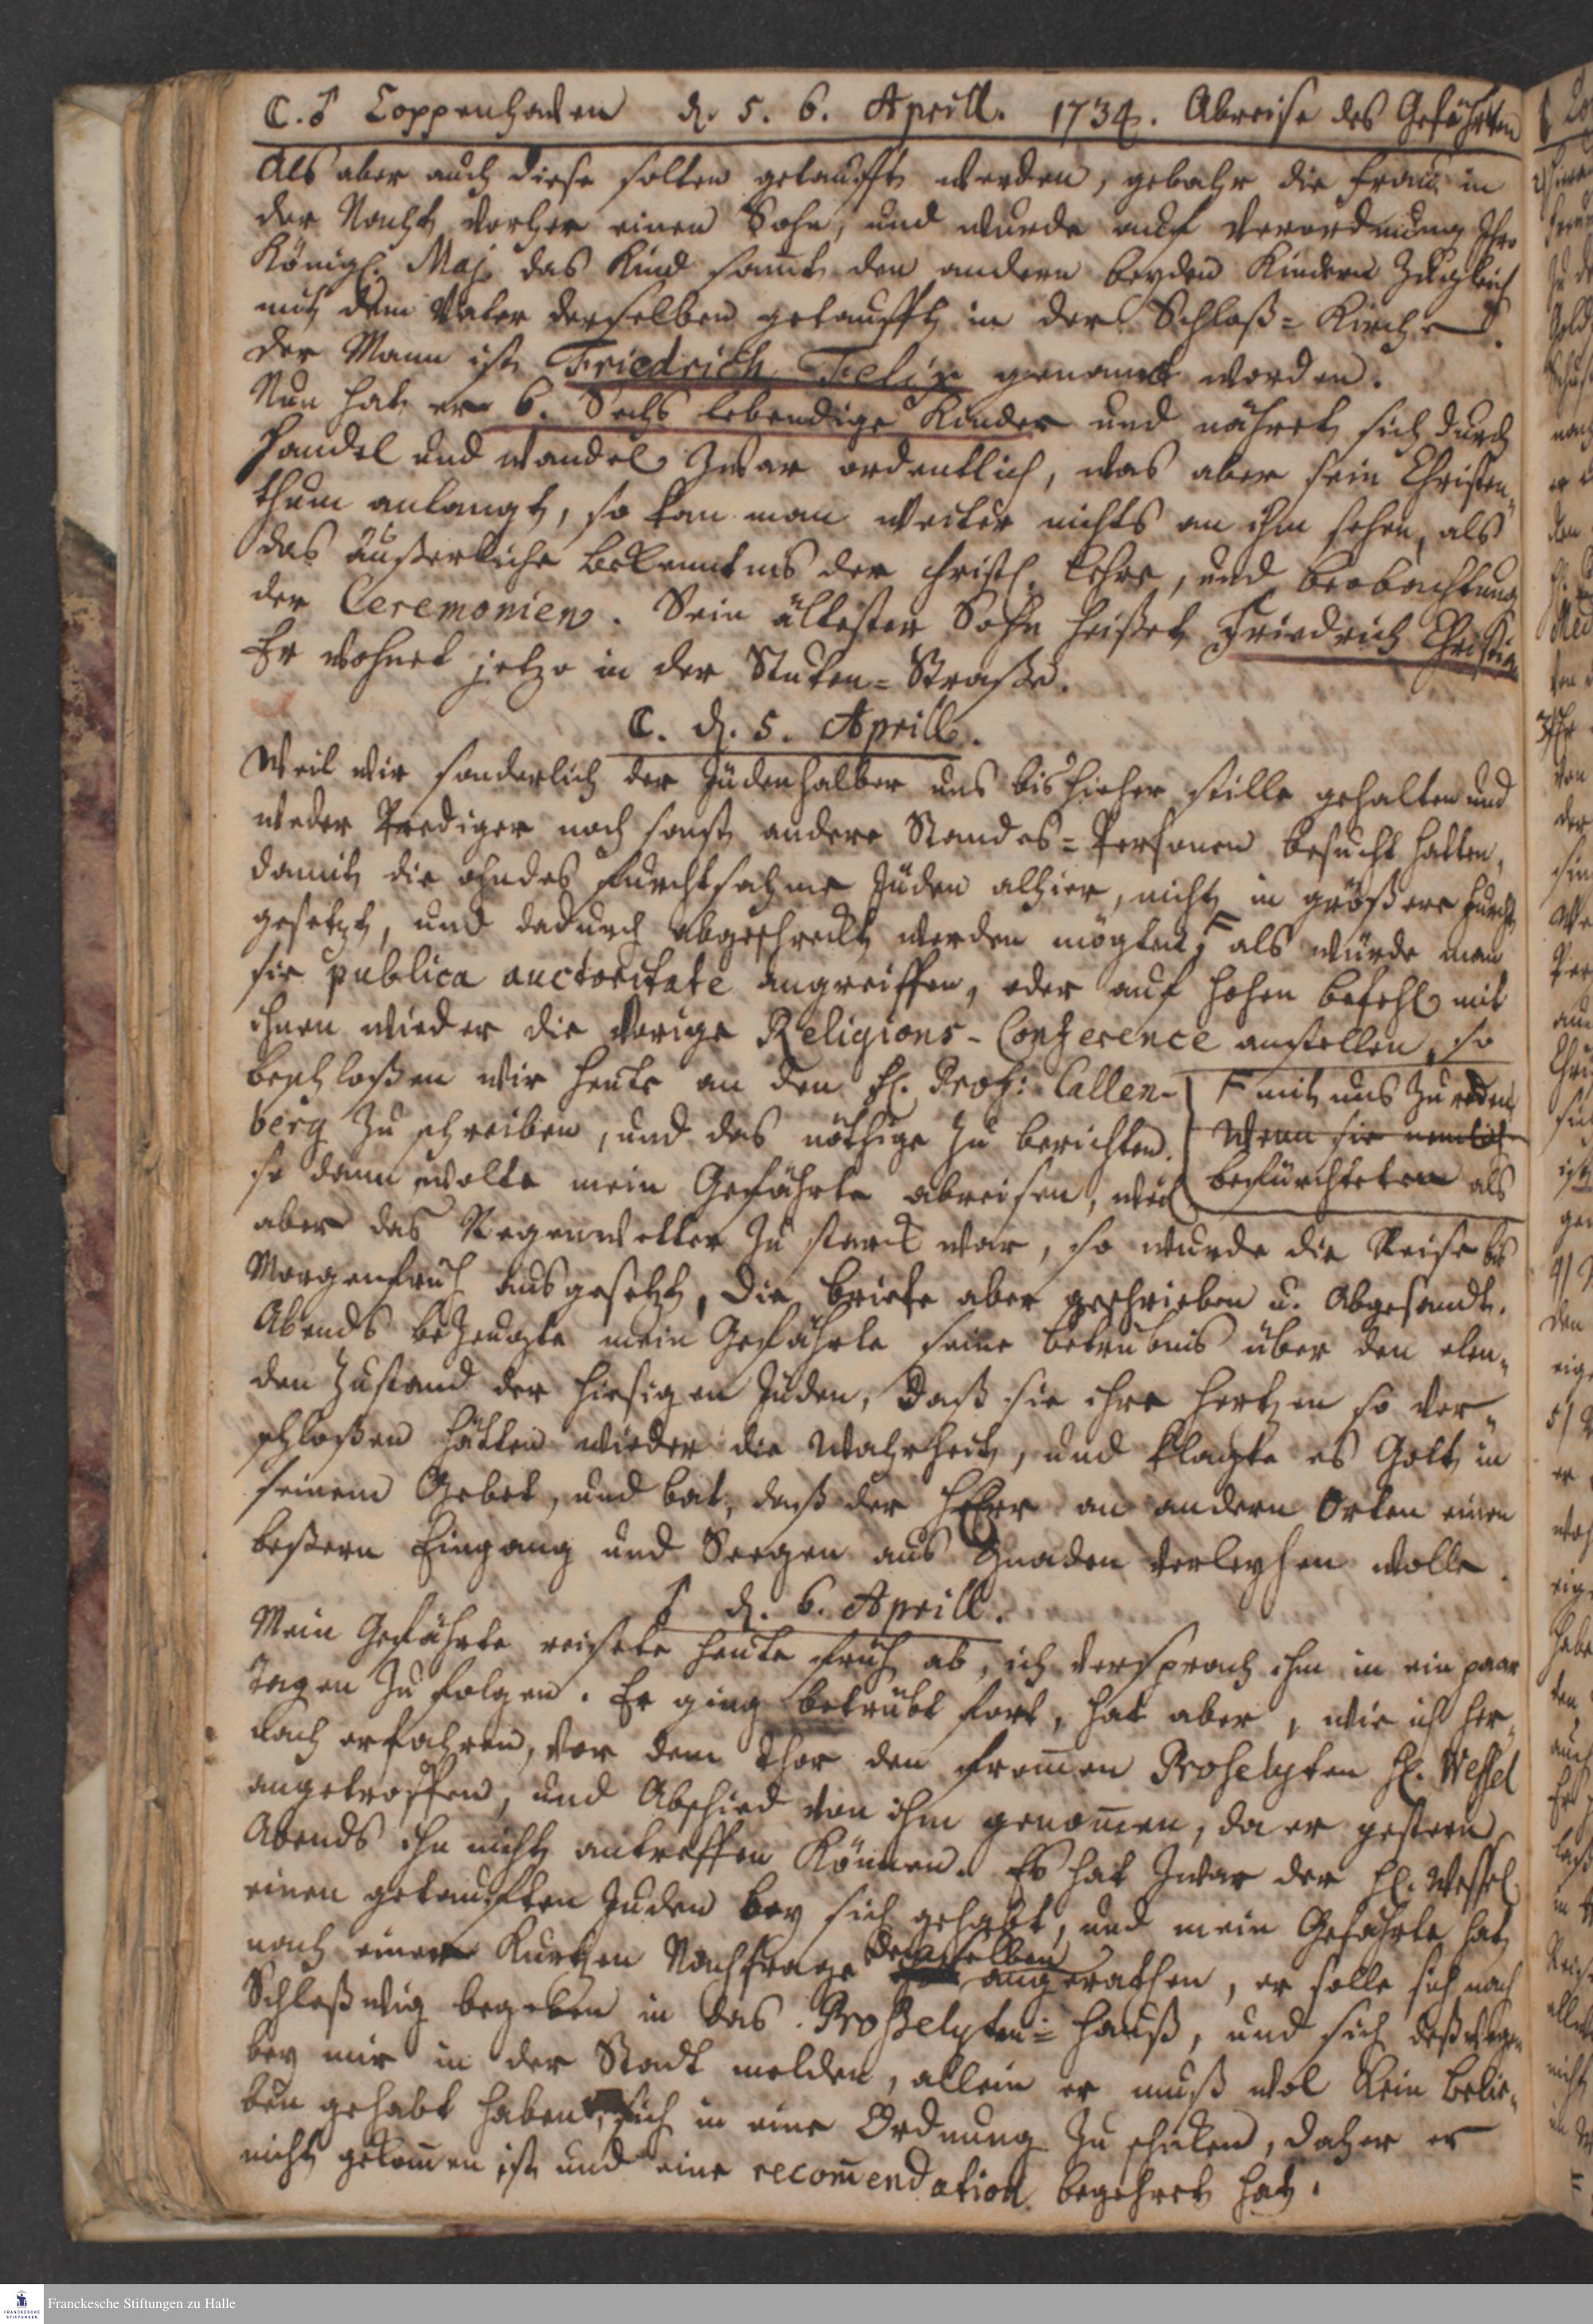 ☾.♂ Coppenhaven d. 5. 6. Aprill. 1734. Abreise des Gefährten
Als aber auch diese solten getaufft werden, gebahr die Frau in
der Nacht vorher einen Sohn, und wurde auf Verordnung Ihro
Königl. Maj. das Kind samt den andern beyden Kindern zugleich
mit dem Vater derselben getaufft in der Schloß=Kirche.
der Mann ist Friedrich Felix genannt worden.
Nun hat er 6. Sechs lebendige Kinder und nähret sich durch
Handel und wandel zwar ordentlich, was aber sein Christen„
thum anlangt, so kan man weiter nichts an ihm sehen, als
das äußerliche bekenntnis der christl. Lehre, und beobachtung
der Ceremonien. Sein ältester Sohn heißet Friedrich Christian
Er wohnet jetzo in der Stuten=Straße.
☾. d. 5. Aprill.
Weil wir sonderlich der Jüdenhalber uns bishieher stille gehalten und
weder Prediger noch sonst andere Standes=Personen besucht hatten,
damit die ohndes furchtsahme Jüden alhier, nicht in größere furcht
gesetzt, und dadurch abgeschreckt werden mögten, F als würde man
sie publica auctoritate angreiffen, oder auf hohen befehl mit
ihnen wieder die vorige Religions-Conference anstellen, so
beschloßen wir heute an den H. Prof: Callen-
berg zu schreiben, und das nöthige zu berichten.
F mit uns zu reden
wenn sie nemlich
befürchteten als
so dann wolte mein Gefährte abreisen, weil
aber das Regenwetter zu starck war, so wurde die Reise bis
Morgenfruh ausgesetzt, die briefe aber geschrieben u. abgesandt.
Abends bezeugte mein Gefährte seine betrübnis über den elen„
den Zustand der hiesigen Juden, daß sie ihre Hertzen so ver„
schloßen hätten wieder die Wahrheit, und klagte es Gott in
seinem Gebet, und bat, daß der HErr an andern Orten einen
beßern Eingang und Seegen aus Gnaden verleyhen wolle.
♂ d. 6. Aprill.
Mein Gefährte reisete heute fruh ab, ich versprach ihm in ein paar
Tagen zu folgen. Er ging betrübt fort, hat aber, wie ich her„
nach erfahren, vor dem Thor den frommen Proselyten H. Wessel
angetroffen, und Abschied von ihm genommen, da er gestern
Abends ihn nicht antreffen können. Es hat zwar der H. Wessel
einen getaufften Juden bey sich gehabt, und mein Gefährte hat
nach einer kurtzen Nachfrage demselben angerathen, er solle sich nach
Schleßwig begeben in das Proselyten=Hauß, und sich deßwegen
bey mir in der Stadt melden, allein er muß wol kein belie„
ben gehabt haben, sich in eine Ordnung zu schicken, daher er
nicht gekommen ist und eine recommendation begehret hat.
Franckesche Stiftungen zu Halle